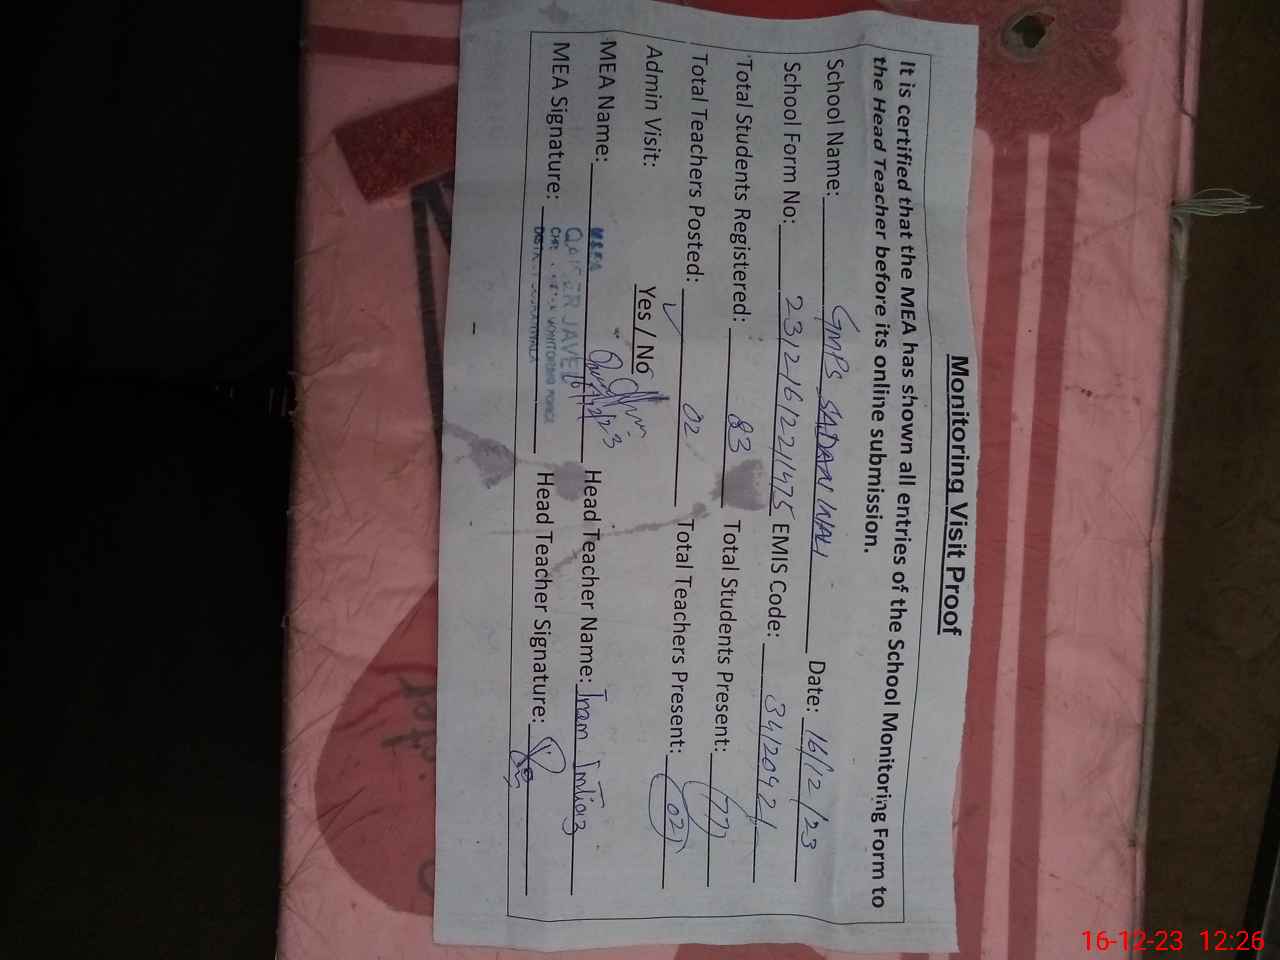 Monitoring Visit Proof
It is certified that the MEA has shown all entries of the School Monitoring Form to
the Head Teacher before its online submission.
School Name: GMPS SADAN WALI Date: 16/12/23
School Form No: 23/2/6/22/1475 EMIS Code: 34120921
Total Students Registered: 83 Total Students Present: 77
Total Teachers Posted: 02 Total Teachers Present: 02
Admin Visit: Yes / No
MEA Name: Head Teacher Name: Iram Imtiaz
MEA Signature: Head Teacher Signature:
JAVED
MONITORING
16-12-23 12:26